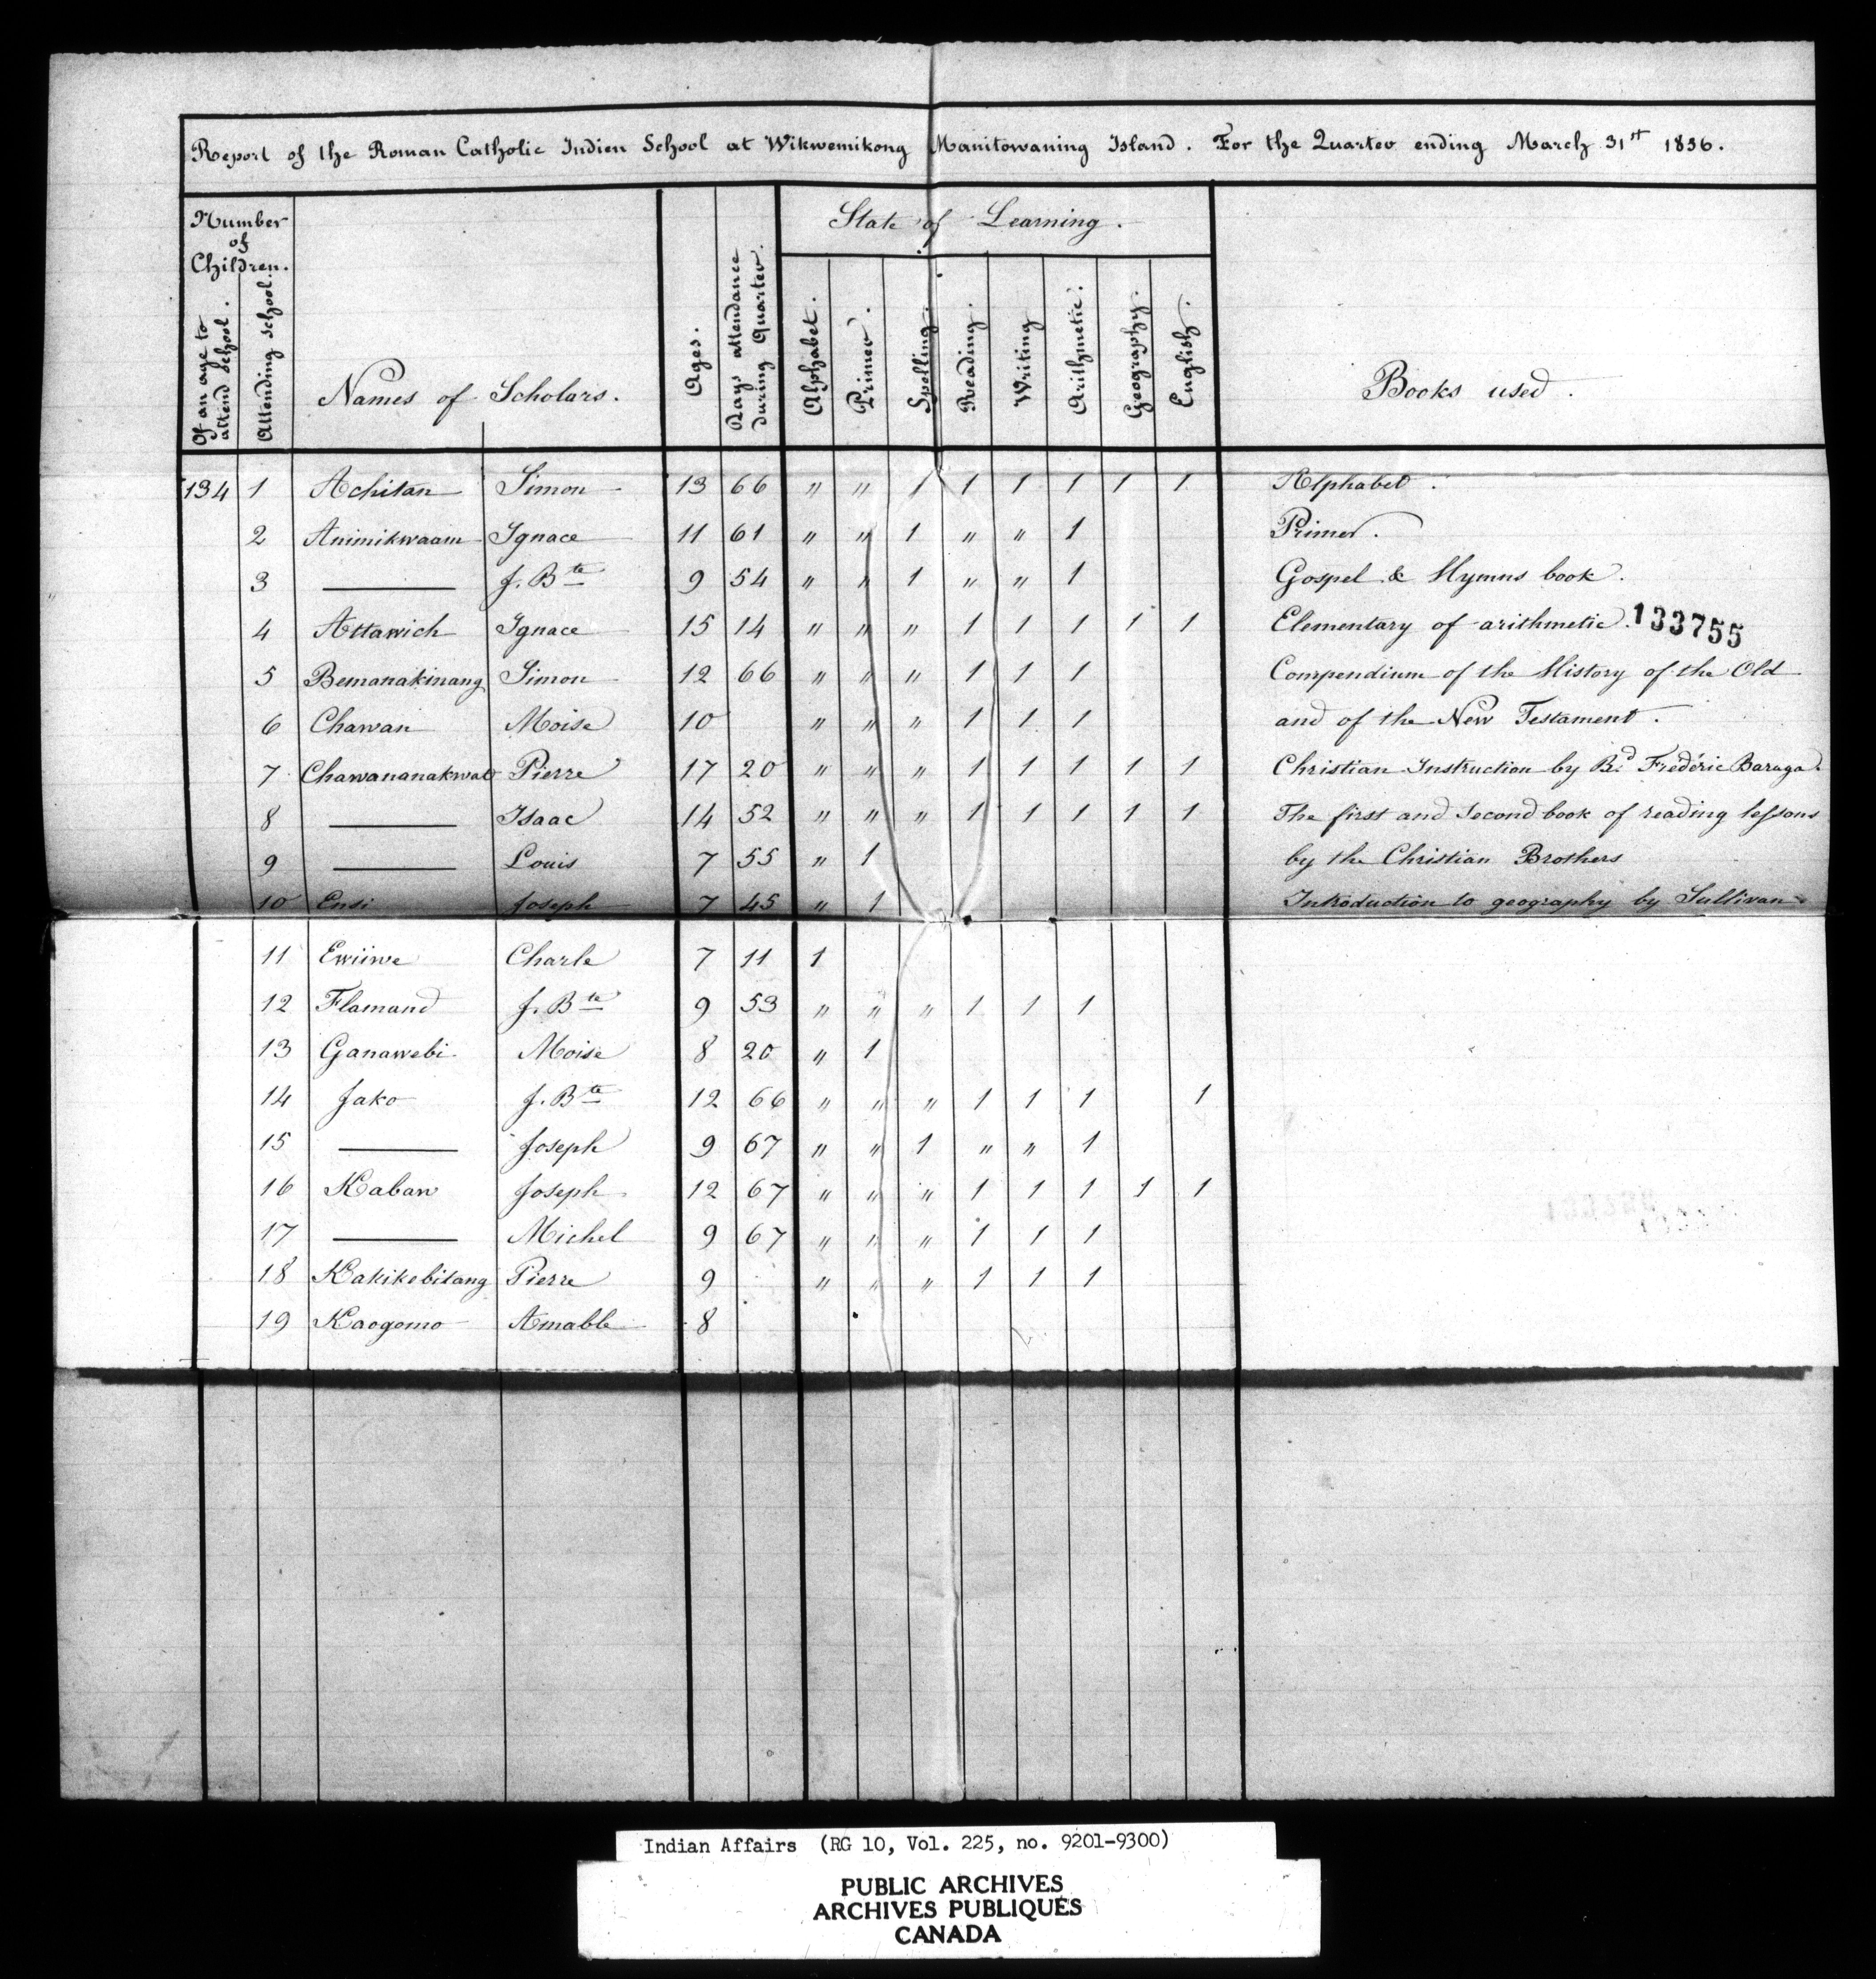 Report of the Roman Catholic Indien School at Wikwemikong Manitowaning Island. For the Quarter ending March 31st 1856.
Number of Children.
Of an age to attend School.
Attending school.
Names of Scholars.
Ages.
Days attendance during Quarter.
State of Learning.
Alphabet.
Primer.
Spelling.
Reading.
Writing
Arithmetic.
Geography.
English.
Books used.
134 1 Achitan Simon 13 66 " " 1 1 1 1 1 1 Alphabet.
2 Animikwaam Ignace 11 61 " " 1 " " 1 Primer.
3 —— J. Bte 9 54 " " 1 " " 1 Gospel & Hymns book.
4 Attawich Ignace 15 14 " " " 1 1 1 1 1 Elementary of arithmetic. 133755
5 Bemanakinang Simon 12 66 " " " 1 1 1 Compendium of the History of the Old
6 Chawan Moise 10 " " " 1 1 1 and of the New Testament.
7 Chawananakwat Pierre 17 20 " " " 1 1 1 1 1 Christian Instruction by Rd. Frédéric Baraga.
8 —— Isaac 14 52 " " " 1 1 1 1 1 The first and Second book of reading lessons
9 —— Louis 7 55 " 1 by the Christian Brothers
10 Ensi Joseph 7 45 " 1 Introduction to geography by Sullivan
11 Ewiiwe Charle 7 11 1
12 Flamand J. Bte 9 53 " " " 1 1 1
13 Ganawebi Moise 8 20 " 1
14 Jako J. Bte 12 66 " " " 1 1 1 1
15 —— Joseph 9 67 " " 1 " " 1
16 Kabaw Joseph 12 67 " " " 1 1 1 1 1
17 —— Michel 9 67 " " " 1 1 1
18 Kakikebitang Pierre 9 " " " 1 1 1
19 Kaogomo Amable 8
Indian Affairs (RG 10, Vol. 225, no. 9201-9300)
PUBLIC ARCHIVES
ARCHIVES PUBLIQUES
CANADA